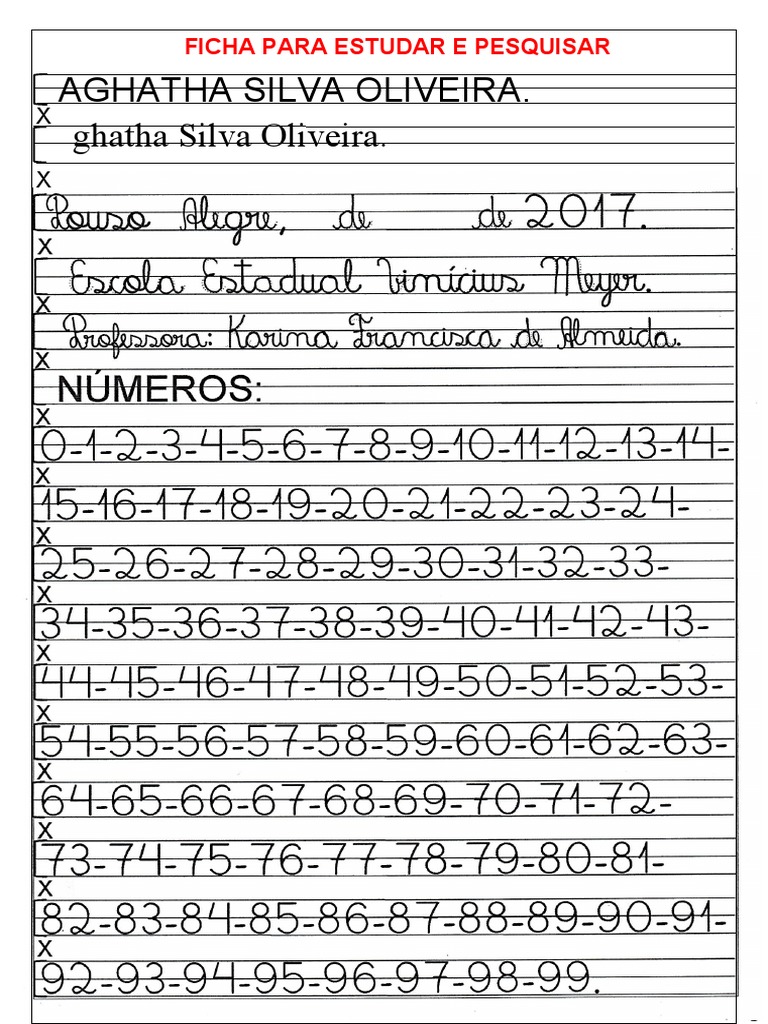 FICHA PARA ESTUDAR E PESQUISAR
AGHATHA SILVA OLIVEIRA.
X
ghatha Silva Oliveira.
X
Pouso Alegre, de de 2017.
X
Escola Estadual Vinícius Meyer.
X
Professora: Karina Francisca de Almeida.
X
NÚMEROS:
X
0-1-2-3-4-5-6-7-8-9-10-11-12-13-14-
X
15-16-17-18-19-20-21-22-23-24-
X
25-26-27-28-29-30-31-32-33-
X
34-35-36-37-38-39-40-41-42-43-
X
44-45-46-47-48-49-50-51-52-53-
X
54-55-56-57-58-59-60-61-62-63-
X
64-65-66-67-68-69-70-71-72-
X
73-74-75-76-77-78-79-80-81-
X
82-83-84-85-86-87-88-89-90-91-
X
92-93-94-95-96-97-98-99.